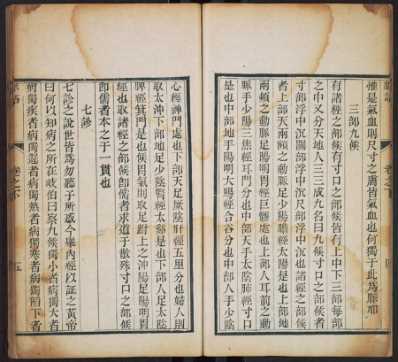 惟是氣血則尺寸之膚皆氣血也何獨于此為脈耶
三部九候
有諸經之部候有寸口之部候皆有上中下三部每部
之中又分天地人三三成九名曰九候寸口之部候者
寸部浮中沉關部浮中沉尺部浮中沉也諸經之部候
者上部天兩額之動脈足少陽膽經太陽是也上部地
兩頰之動脈足陽明胃經巨髎處也上部人耳前之動
脈手少陽三焦經耳門分也中部天手太陰肺經寸口
是也中部地手陽明大腸經合谷分也中部人手少陰
心經神門處也下部天足厥陰肝經五里分也婦人則
取太沖下部地足少陰腎經太谿是也下部人足太陰
脾經箕門是也候胃氣則取足跗上之沖陽足陽明胃
經也取諸經之部候即儒者求道于散殊寸口之部候
即儒者本之于一貫也
七診
七診之說世皆為勿聽子所惑今舉內經以証之黃帝
曰何以知病之所在岐伯曰察九候獨小者病獨大者
病獨疾者病獨遲者病獨熱者病獨寒者病獨陷下者
卷之下
五